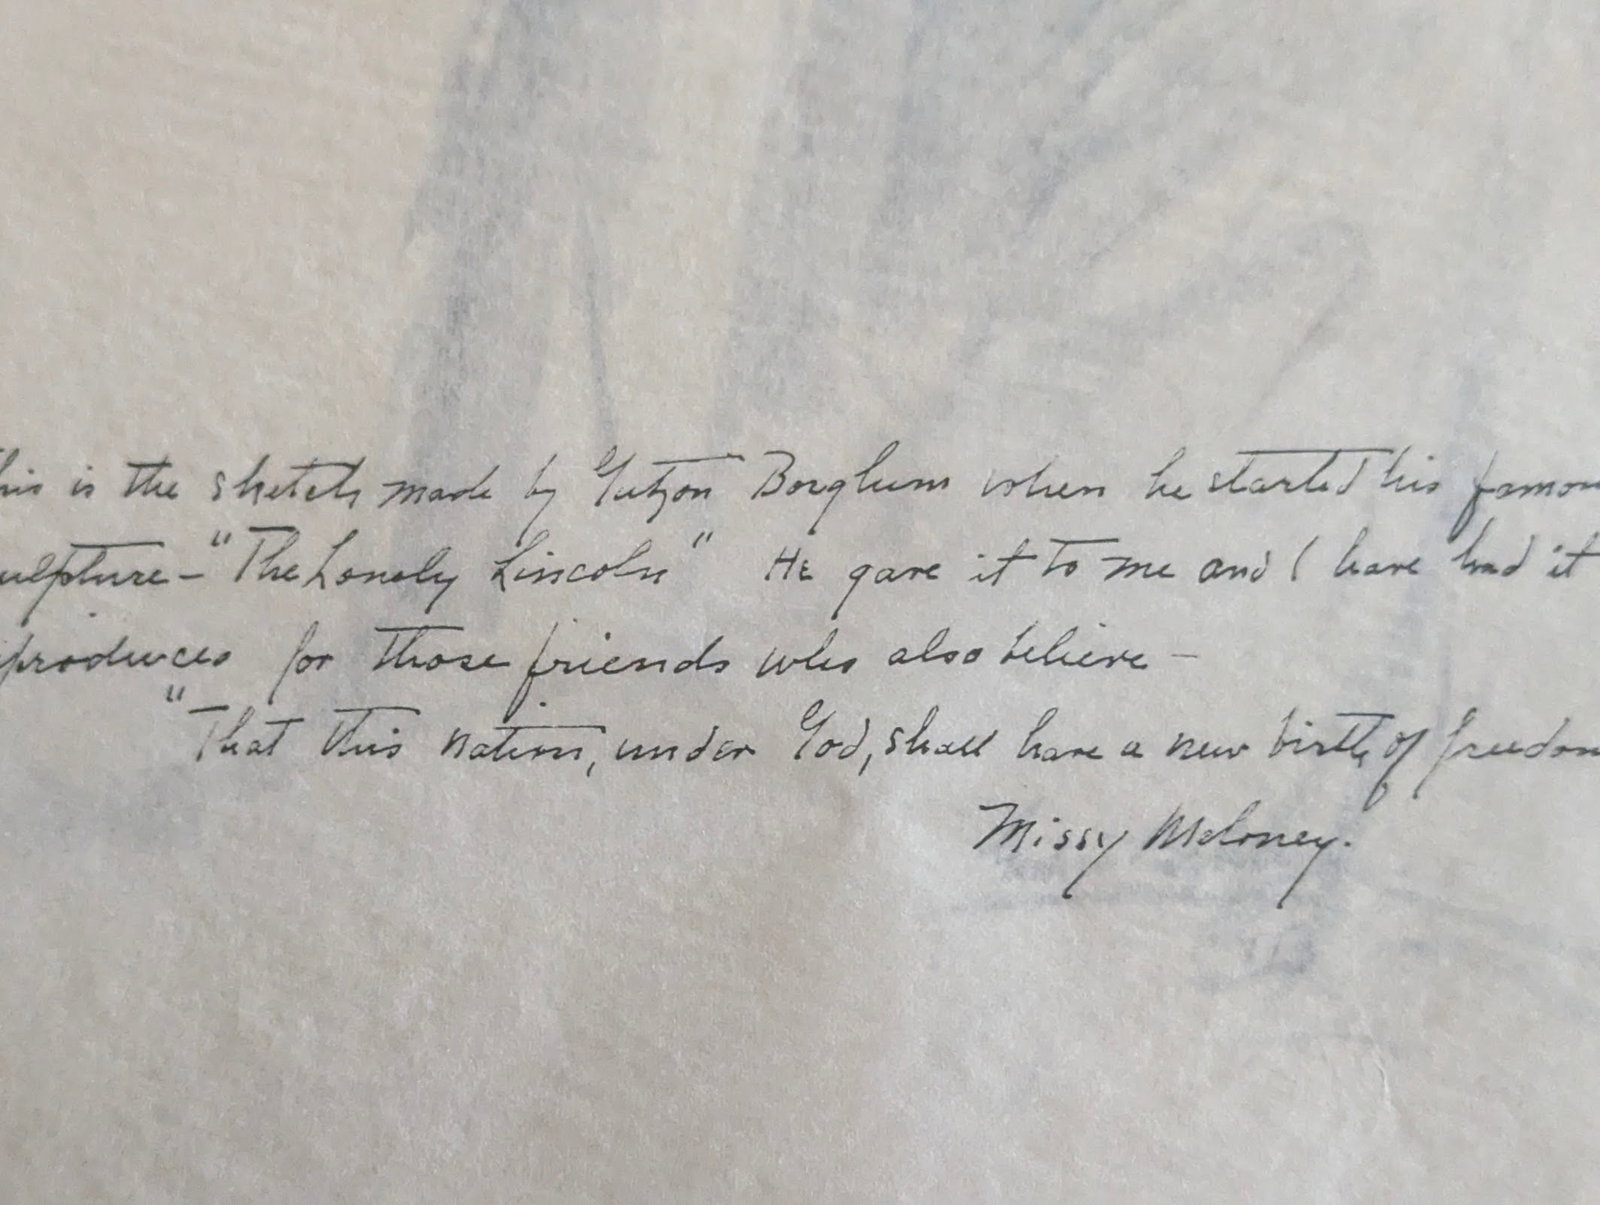 his is the sketch made by Gutzon Borglum when he started his famou
ulpture – "The Lonely Lincoln" He gave it to me and I have had it
produced for those friends who also believe –
"That this nation, under God, shall have a new birth of freedom
Missy Meloney.